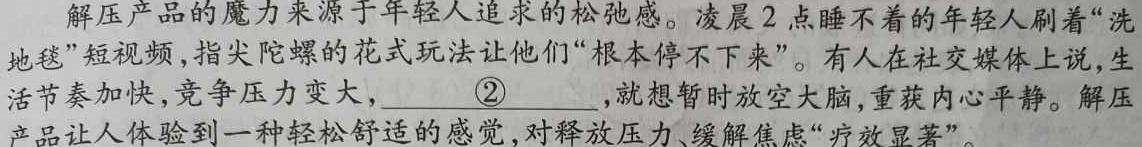 解压产品的魔力来源于年轻人追求的松弛感。凌晨2点睡不着的年轻人刷着“洗
地毯”短视频,指尖陀螺的花式玩法让他们“根本停不下来”。有人在社交媒体上说,生
活节奏加快,竞争压力变大,②,就想暂时放空大脑,重获内心平静。解压
产品让人体验到一种轻松舒适的感觉,对释放压力、缓解焦虑“疗效显著”。